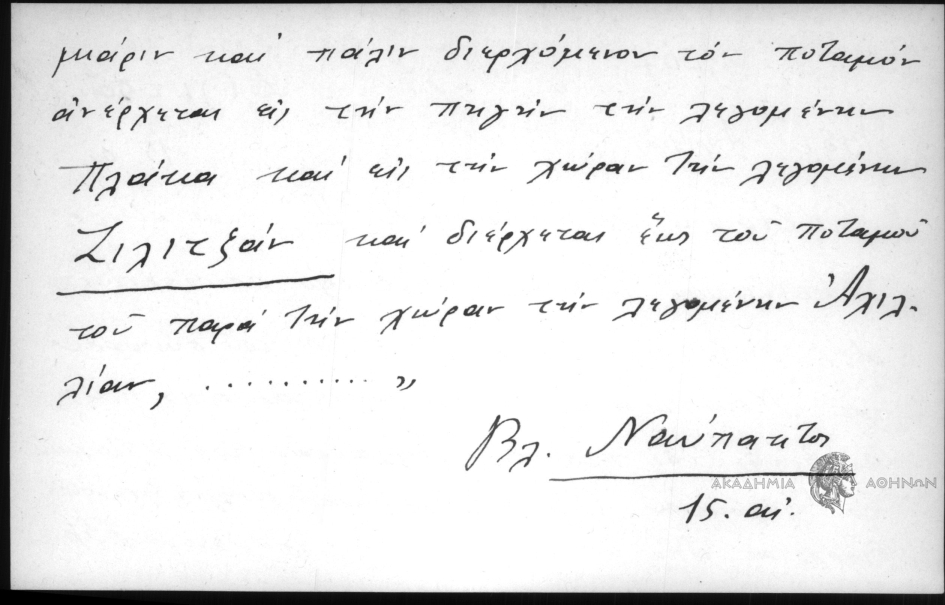 μκάριν καί πάλιν διερχόμενον τόν ποταμόν
ἀνέρχεται εἰς τήν πηγήν τήν λεγομένην
Πλάκα καί εἰς τήν χώραν τήν λεγομένην
Σιλιτζάν καί διέρχεται ἕως τοῦ ποταμοῦ
τοῦ παρά τήν χώραν τήν λεγομένην Ἀχιλ-
λίαν, .......... „
Βλ. Ναύπακτος
ΑΚΑΔΗΜΙΑ ΑΘΗΝΩΝ
15. αἰ.